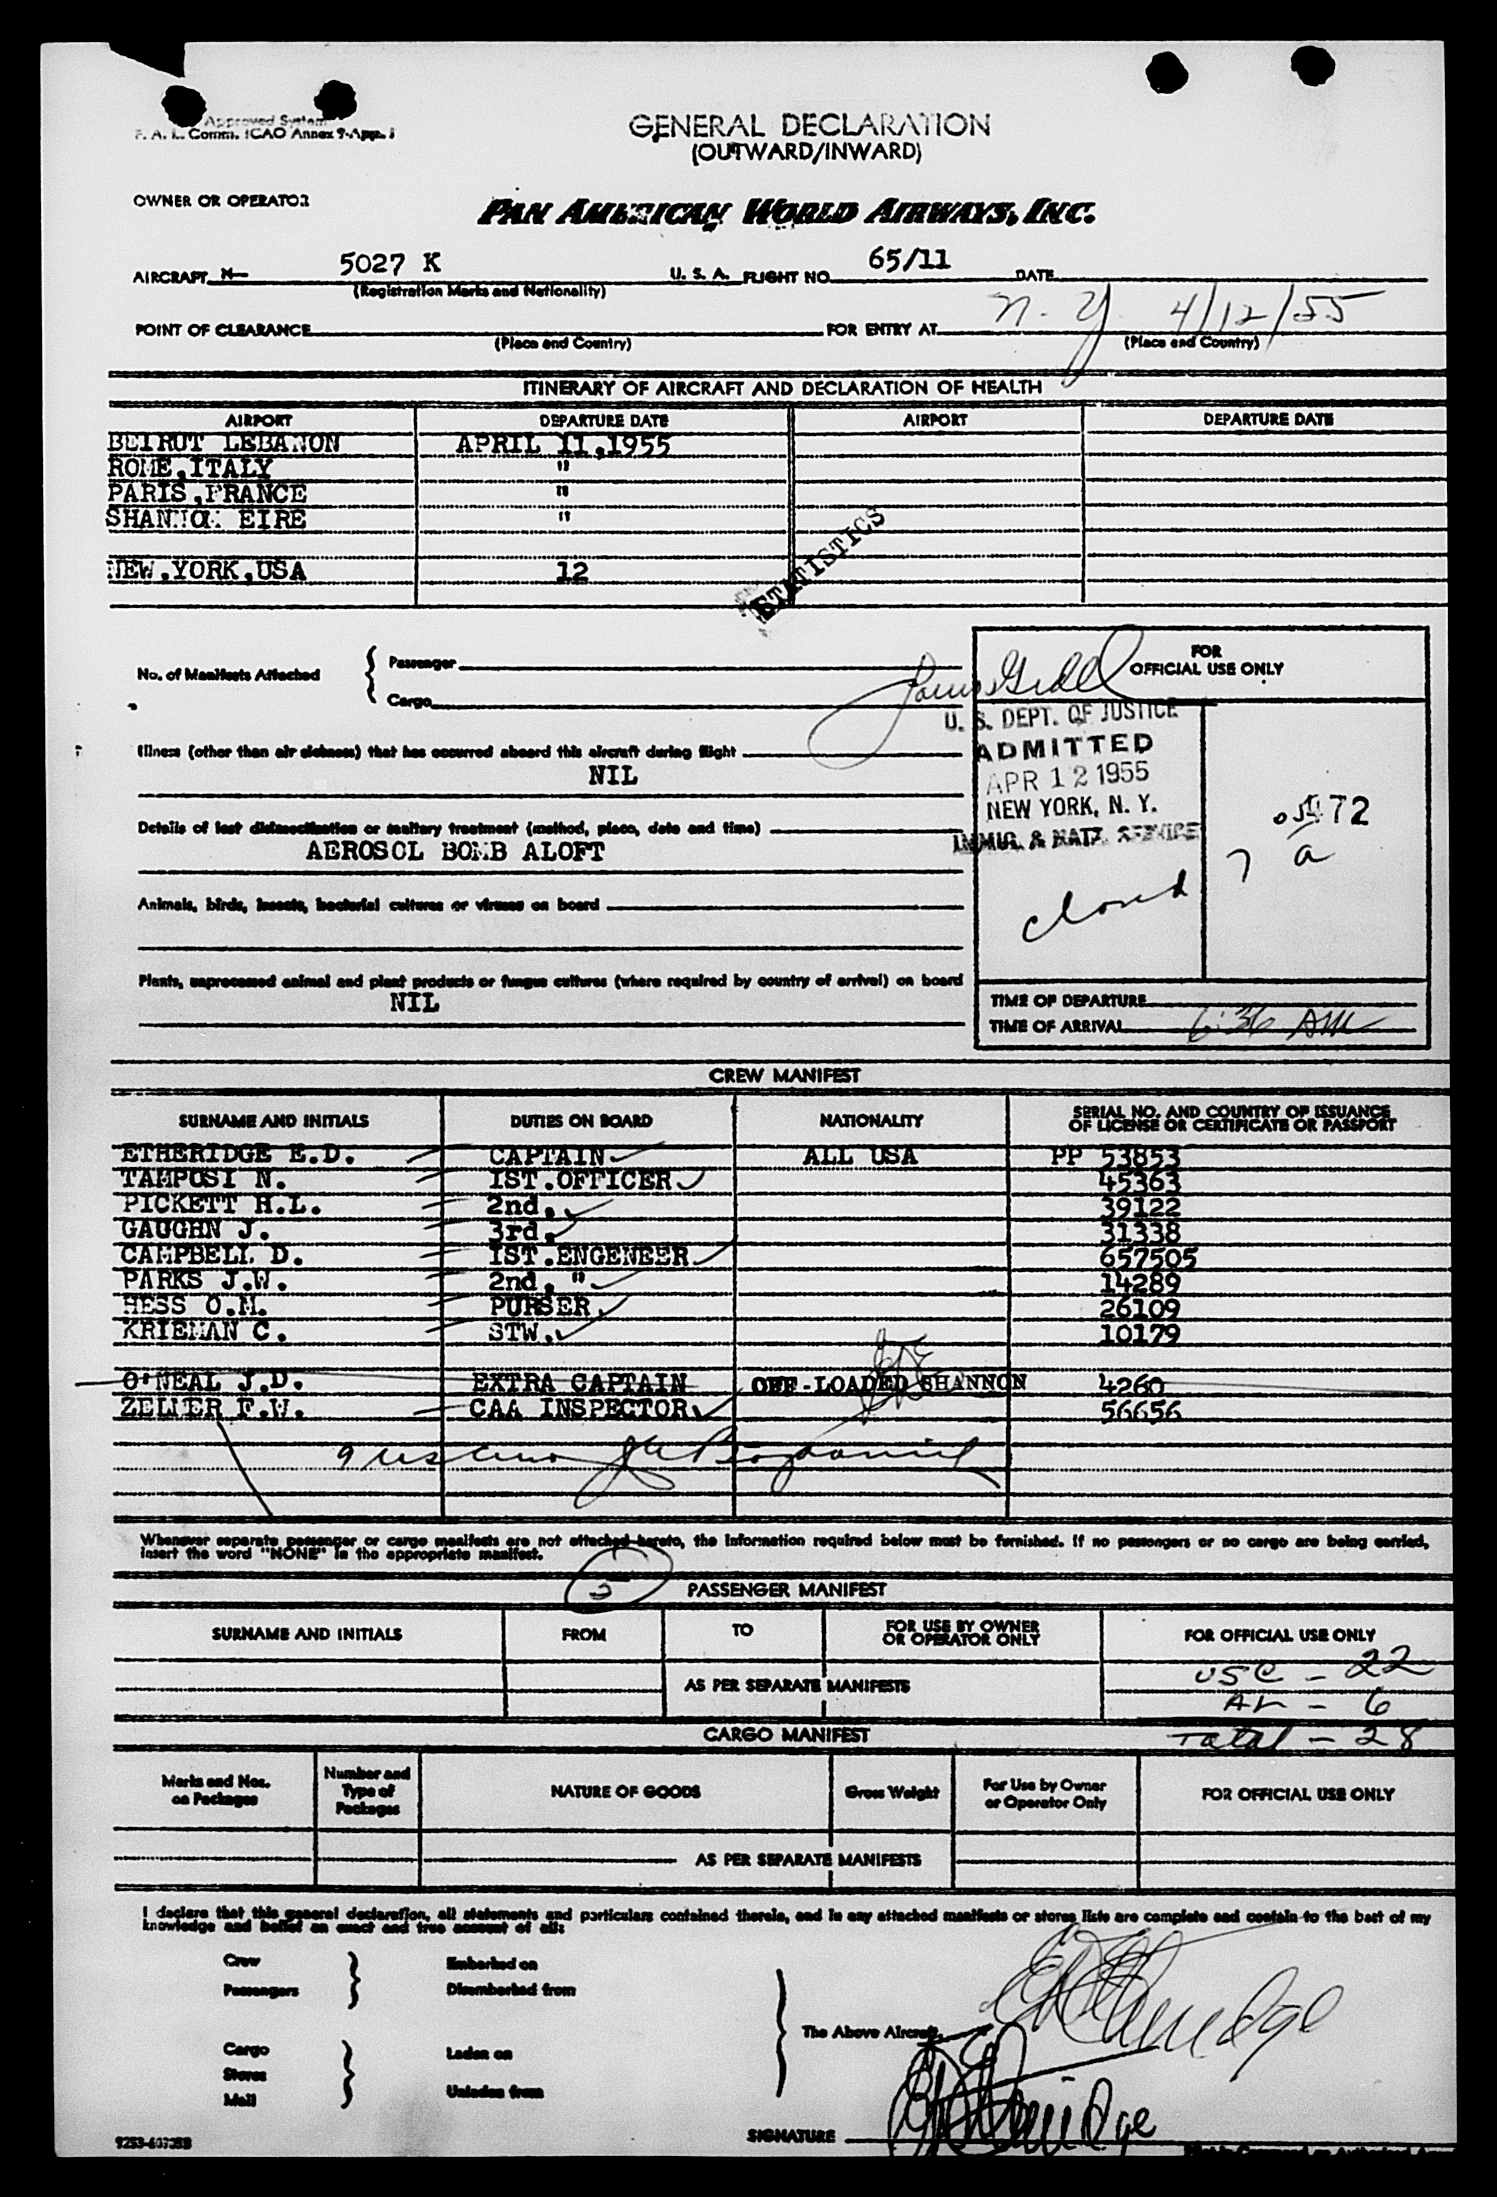 Approved System
F. A. L. Comm. ICAO Annex 9-App. 1
GENERAL DECLARATION
(OUTWARD/INWARD)
OWNER OR OPERATOR
PAN AMERICAN WORLD AIRWAYS, INC.
AIRCRAFT N- 5027 K U. S. A. FLIGHT NO. 65/11 DATE
(Registration Marks and Nationality)
POINT OF CLEARANCE FOR ENTRY AT N. Y. 4/12/55
(Place and Country) (Place and Country)
ITINERARY OF AIRCRAFT AND DECLARATION OF HEALTH
AIRPORT DEPARTURE DATE AIRPORT DEPARTURE DATE
BEIRUT LEBANON APRIL 11,1955
ROME,ITALY "
PARIS,FRANCE "
SHANNON EIRE "
STATISTICS
NEW.YORK,USA 12
No. of Manifests Attached { Passenger
Cargo
FOR
OFFICIAL USE ONLY
U. S. DEPT. OF JUSTICE
ADMITTED
APR 12 1955
NEW YORK, N. Y.
IMMIG. & NATZ. SERVICE
closed
72
7 a
Illness (other than air sickness) that has occurred aboard this aircraft during flight
NIL
Details of last disinsectization or sanitary treatment (method, place, date and time)
AEROSOL BOMB ALOFT
Animals, birds, insects, bacterial cultures or viruses on board
Plants, unprocessed animal and plant products or fungus cultures (where required by country of arrival) on board
NIL
TIME OF DEPARTURE
TIME OF ARRIVAL 6:36 AM
CREW MANIFEST
SURNAME AND INITIALS DUTIES ON BOARD NATIONALITY SERIAL NO. AND COUNTRY OF ISSUANCE
OF LICENSE OR CERTIFICATE OR PASSPORT
ETHERIDGE E.D. CAPTAIN ALL USA PP 53853
TAMPOSI N. IST.OFFICER 45363
PICKETT H.L. 2nd.. 39122
GAUGHN J. 3rd. 31338
CAMPBELL D. IST.ENGENEER 657505
PARKS J.W. 2nd. " 14289
HESS O.M. PURSER. 26109
KRIEMAN C. STW. 10179
O'NEAL J.D. EXTRA CAPTAIN OFF-LOADED SHANNON 4260
ZELMER F.W. CAA INSPECTOR 56656
Whenever separate passenger or cargo manifests are not attached hereto, the information required below must be furnished. If no passengers or no cargo are being carried,
insert the word "NONE" in the appropriate manifest.
PASSENGER MANIFEST
SURNAME AND INITIALS FROM TO FOR USE BY OWNER
OR OPERATOR ONLY FOR OFFICIAL USE ONLY
USC - 22
AS PER SEPARATE MANIFESTS
AL - 6
CARGO MANIFEST Total - 28
Marks and Nos.
on Packages Number and
Type of
Packages NATURE OF GOODS Gross Weight For Use by Owner
or Operator Only FOR OFFICIAL USE ONLY
AS PER SEPARATE MANIFESTS
I declare that this general declaration, all statements and particulars contained therein, and in any attached manifests or stores lists are complete and contain to the best of my
knowledge and belief an exact and true account of all:
Crew Embarked on
Passengers Disembarked from
The Above Aircraft.
Cargo Laden on
Stores
Mail Unladen from
E D Etheridge
SIGNATURE E D Etheridge